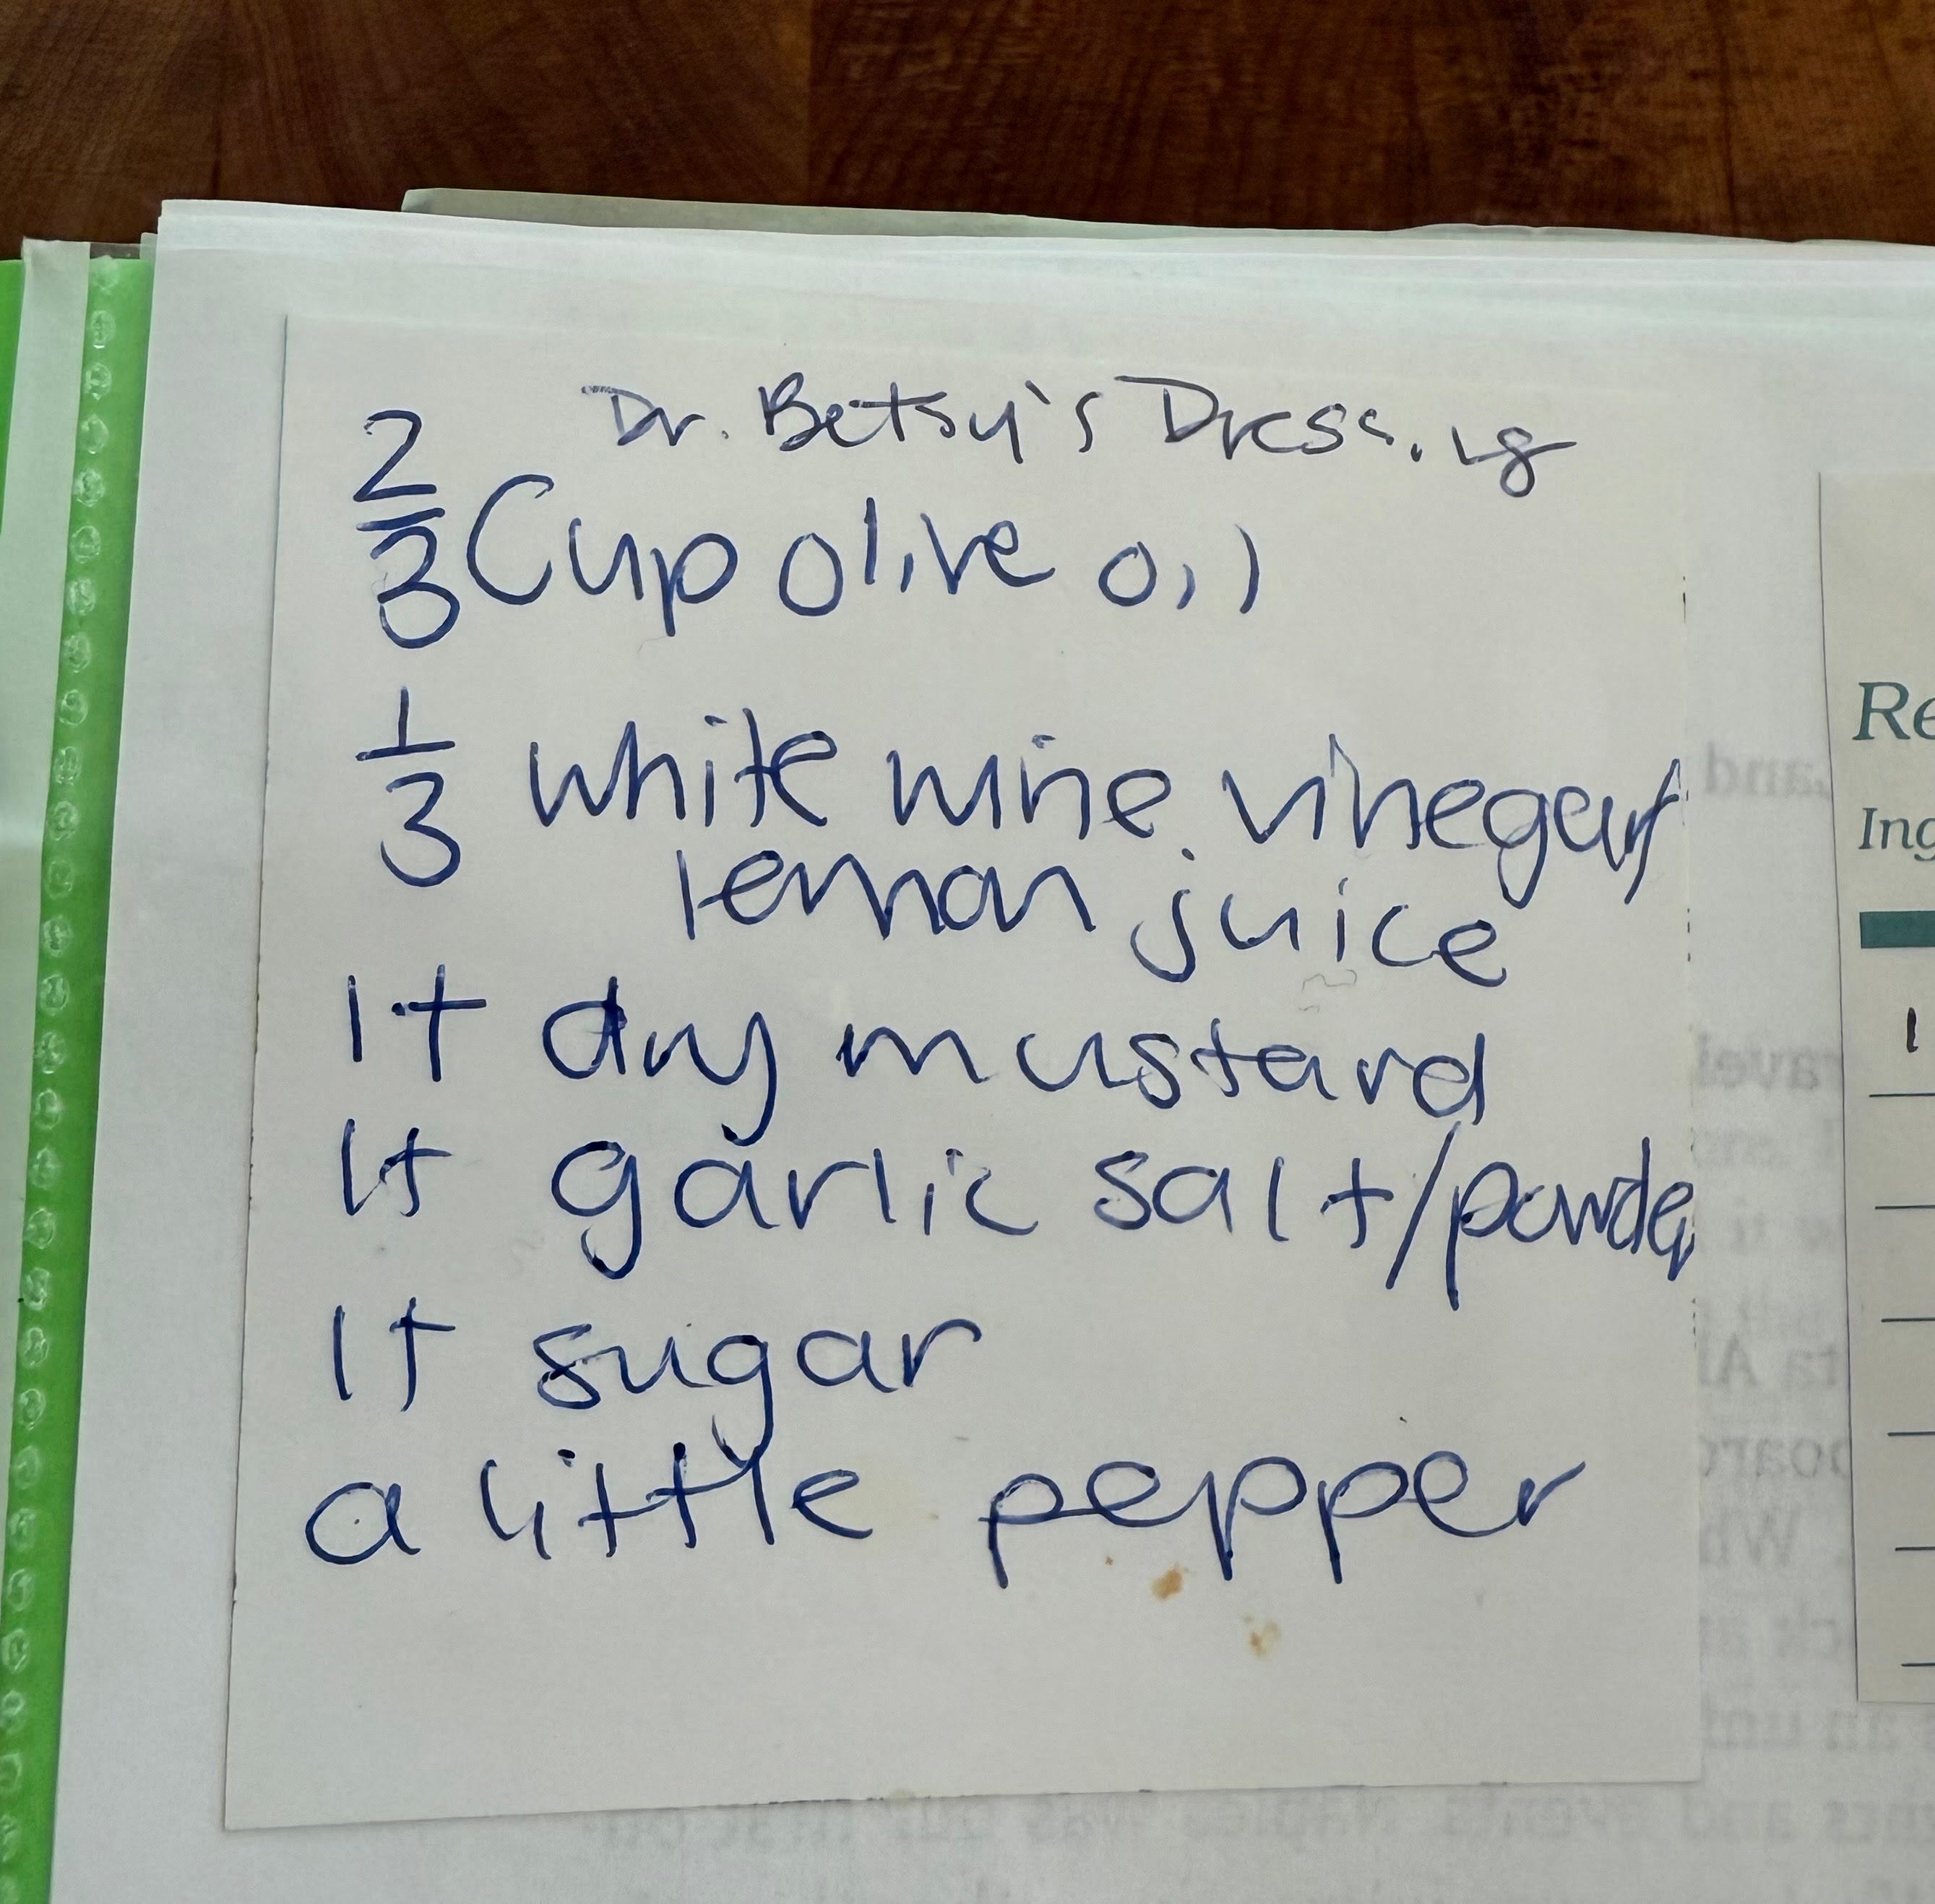 Dr. Betsy's Dressing
2/3 Cup olive oil
1/3 white wine vinegar/
lemon juice
1t dry mustard
1t garlic salt/powder
1t sugar
a little pepper
Re
Ing
1